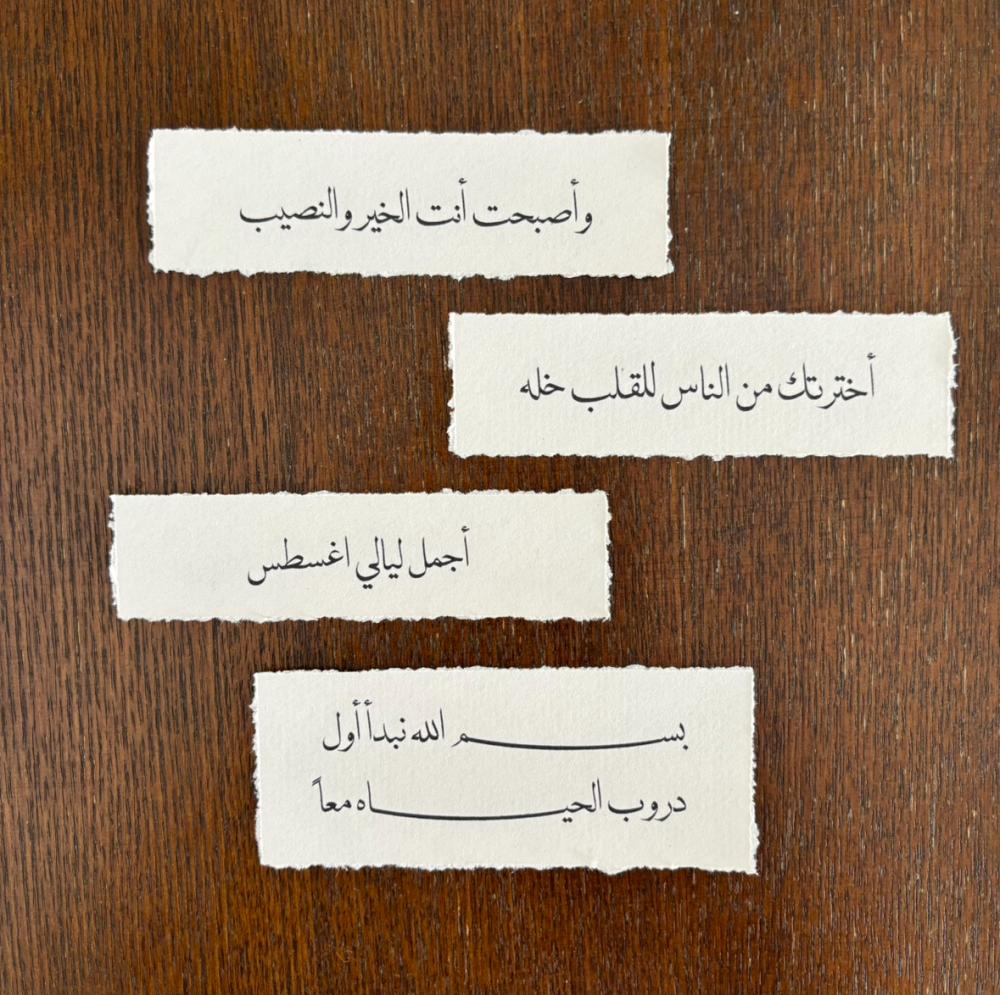 وأصبحت أنت الخير والنصيب
أخترتك من الناس للقلب خله
أجمل ليالي اغسطس
بســـم الله نبدأ أول
دروب الحيـــاه معاً